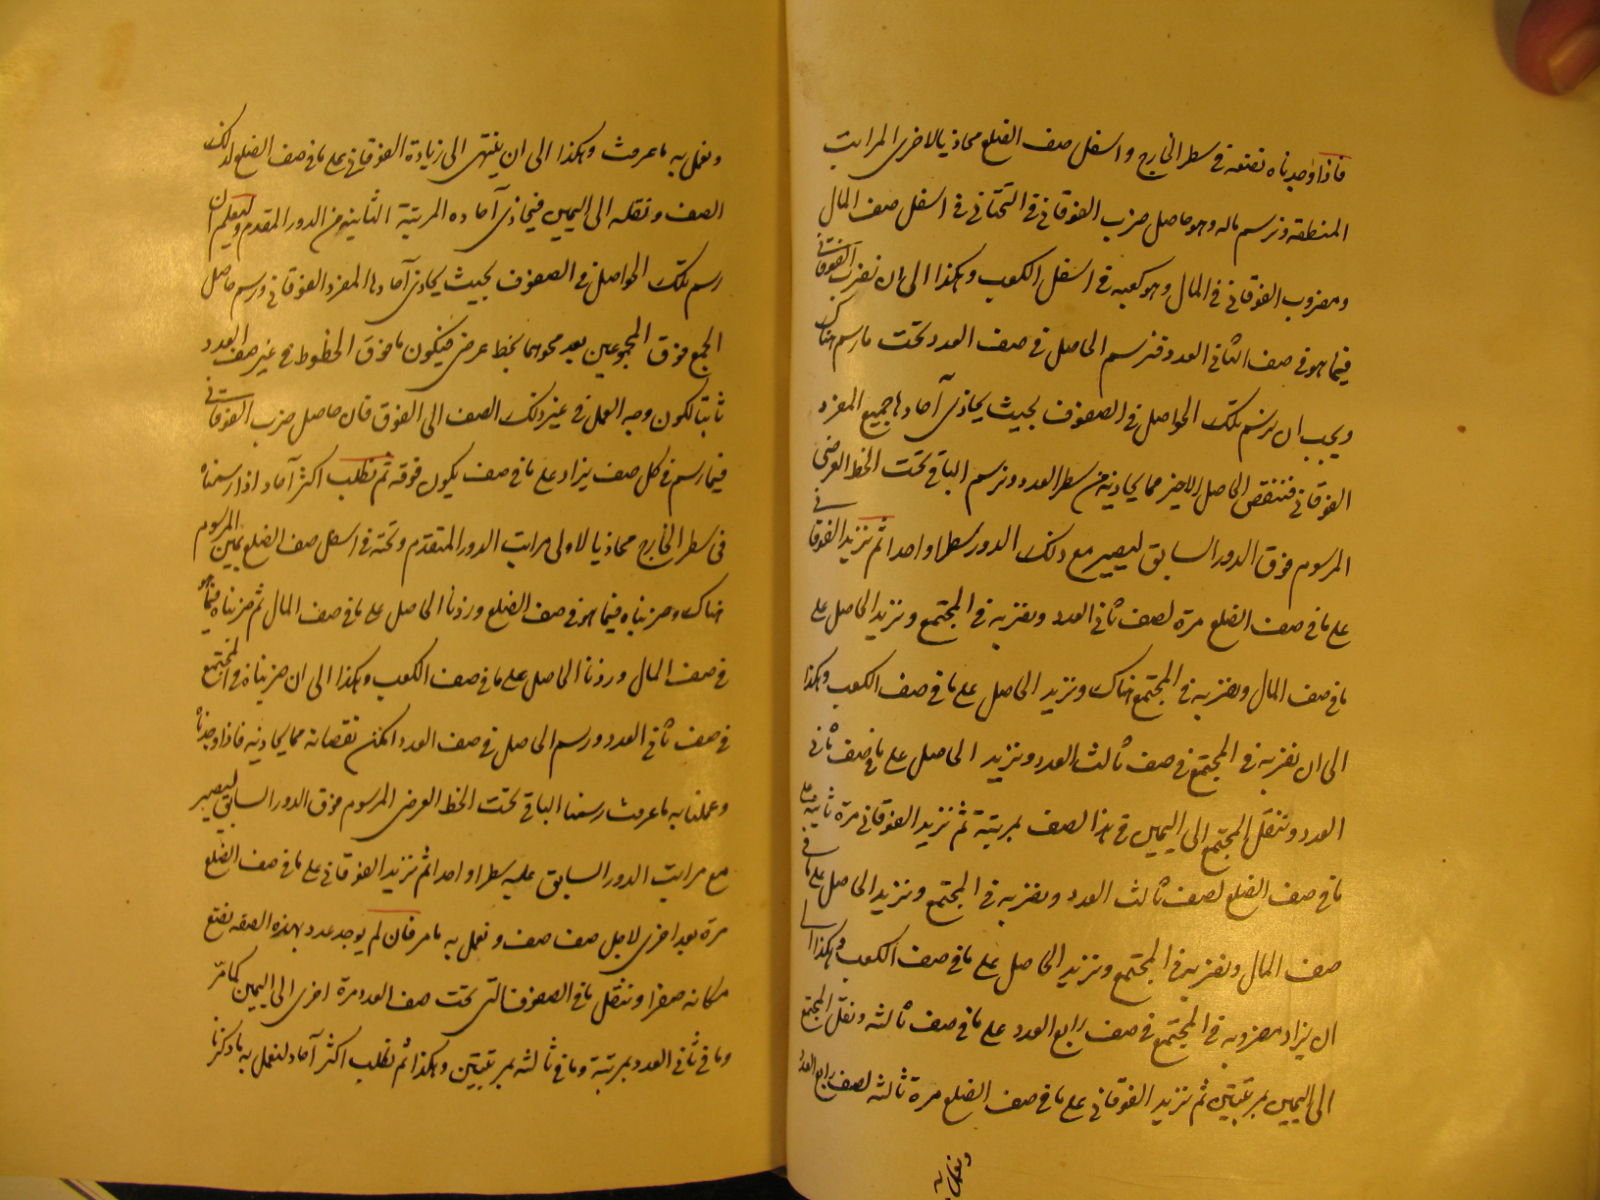 فاذا وجدناه نضعه في سطر الخارج واسفل صف الضلع محاذيا لاخرى المراتب
المنطقة ونرسم ماله وهو حاصل ضرب الفوقاني في التحتاني في اسفل صف المال
ومضروب الفوقاني في المال وهو كعبه في اسفل الكعب وهكذا الى ان نضرب الفوقاني
فيما هو في صف الثاني العدد فنرسم الحاصل في صف العدد تحت ما رسم هناك
ويجب ان نرسم تلك الحواصل في الصفوف بحيث يحاذي آحادها جميع المفرد
الفوقاني فننقص الحاصل الاخير مما يحاذيه من سطر العدد ونرسم الباقي تحت الخط العرضي
المرسوم فوق الدور السابق ليصير مع ذلك الدور سطرا واحدا ثم نزيد الفوقاني
على ما في صف الضلع مرة لصف ثاني العدد ونضربه في المجتمع ونزيد الحاصل على
ما في صف المال ونضربه في المجتمع هناك ونزيد الحاصل على ما في صف الكعب وهكذا
الى ان نضربه في المجتمع في صف ثالث العدد ونزيد الحاصل على ما في صف ثاني
العدد وننقل المجتمع الى اليمين في هذا الصف بمرتبة ثم نزيد الفوقاني مرة ثانية على
ما في صف الضلع لصف ثالث العدد ونضربه في المجتمع ونزيد الحاصل على ما في
صف المال ونضربه في المجتمع ونزيد الحاصل على ما في صف الكعب وهكذا الى
ان يزاد مضروبه في المجتمع في صف رابع العدد على ما في صف ثالثه وننقل المجتمع
الى اليمين بمرتبتين ثم نزيد الفوقاني على ما في صف الضلع مرة ثالثة لصف رابع العدد
ونعمل به
ونعمل به ما عرفت وهكذا الى ان ينتهى الى زيادة الفوقاني على ما في صف الضلع لذلك
الصف وننقله الى اليمين فيحاذى آحاده المرتبة الثانية من الدور المقدم وليعلم ان
رسم تلك الحواصل في الصفوف بحيث يحاذي آحادها المفرد الفوقاني ورسم حاصل
الجمع فوق المجموعين بعد محوهما بخط عرضي فيكون ما فوق الخطوط في غير صف العدد
ثابتا لكون وجه العمل في غير ذلك الصف الى الفوق فان حاصل ضرب الفوقاني
فيما رسم في كل صف يزاد على ما في صف يكون فوقه ثم نطلب اكثر آحاد اذا رسمناه
في سطر الخارج محاذيا لاولى مراتب الدور المتقدم وتحته في اسفل صف الضلع بيمين المرسوم
هناك وضربناه فيما هو في صف الضلع وزدنا الحاصل على ما في صف المال ثم ضربناه فيما هو
في صف المال وزدنا الحاصل على ما في صف الكعب وهكذا الى ان ضربناه في المجتمع
في صف ثاني العدد ورسم الحاصل في صف العدد امكن نقصانه مما يحاذيه فاذا وجدناه
وعملنا به ما عرفت رسمنا الباقي تحت الخط العرضي المرسوم فوق الدور السابق ليصير
مع مراتب الدور السابق عليه سطرا واحدا ثم نزيد الفوقاني على ما في صف الضلع
مرة بعد اخرى لاجل صف صف ونعمل به ما مر فان لم يوجد عدد بهذه الصفة نضع
مكانه صفرا وننقل ما في الصفوف التي تحت صف العدد مرة اخرى الى اليمين كما مرّ
وما في ثاني العدد بمرتبة وما في ثالثه بمرتبتين وهكذا ثم نطلب اكثر آحاد لنعمل به ما ذكرنا